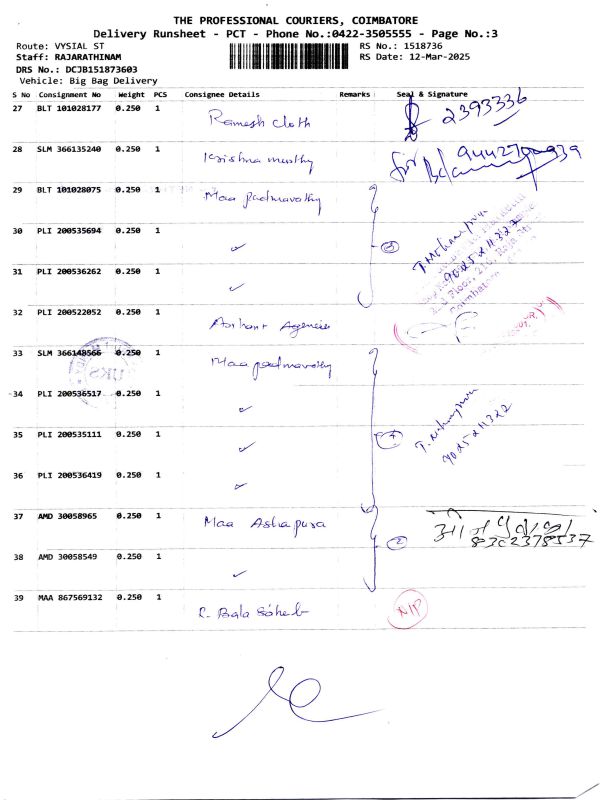 THE PROFESSIONAL COURIERS, COIMBATORE
Delivery Runsheet - PCT - Phone No.:0422-3505555 - Page No.:3
Route: VYSIAL ST RS No.: 1518736
Staff: RAJARATHINAM RS Date: 12-Mar-2025
DRS No.: DCJB151873603
Vehicle: Big Bag Delivery
S No Consignment No Weight PCS Consignee Details Remarks Seal & Signature
27 BLT 101028177 0.250 1 Ramesh Cloth 2393336
28 SLM 366135240 0.250 1 Krishna murthy for
29 BLT 101028075 0.250 1 Maa padmavathy
30 PLI 200535694 0.250 1 ✓ 3
31 PLI 200536262 0.250 1 ✓
32 PLI 200522052 0.250 1 Arihant Agencies
33 SLM 366148566 0.250 1 Maa padmavathy
34 PLI 200536517 0.250 1 ✓
35 PLI 200535111 0.250 1 ✓ 4
36 PLI 200536419 0.250 1 ✓
37 AMD 30058965 0.250 1 Maa Ashapura 8302378537
38 AMD 30058549 0.250 1 ✓ 2
39 MAA 867569132 0.250 1 R. Bala Saheb N/P